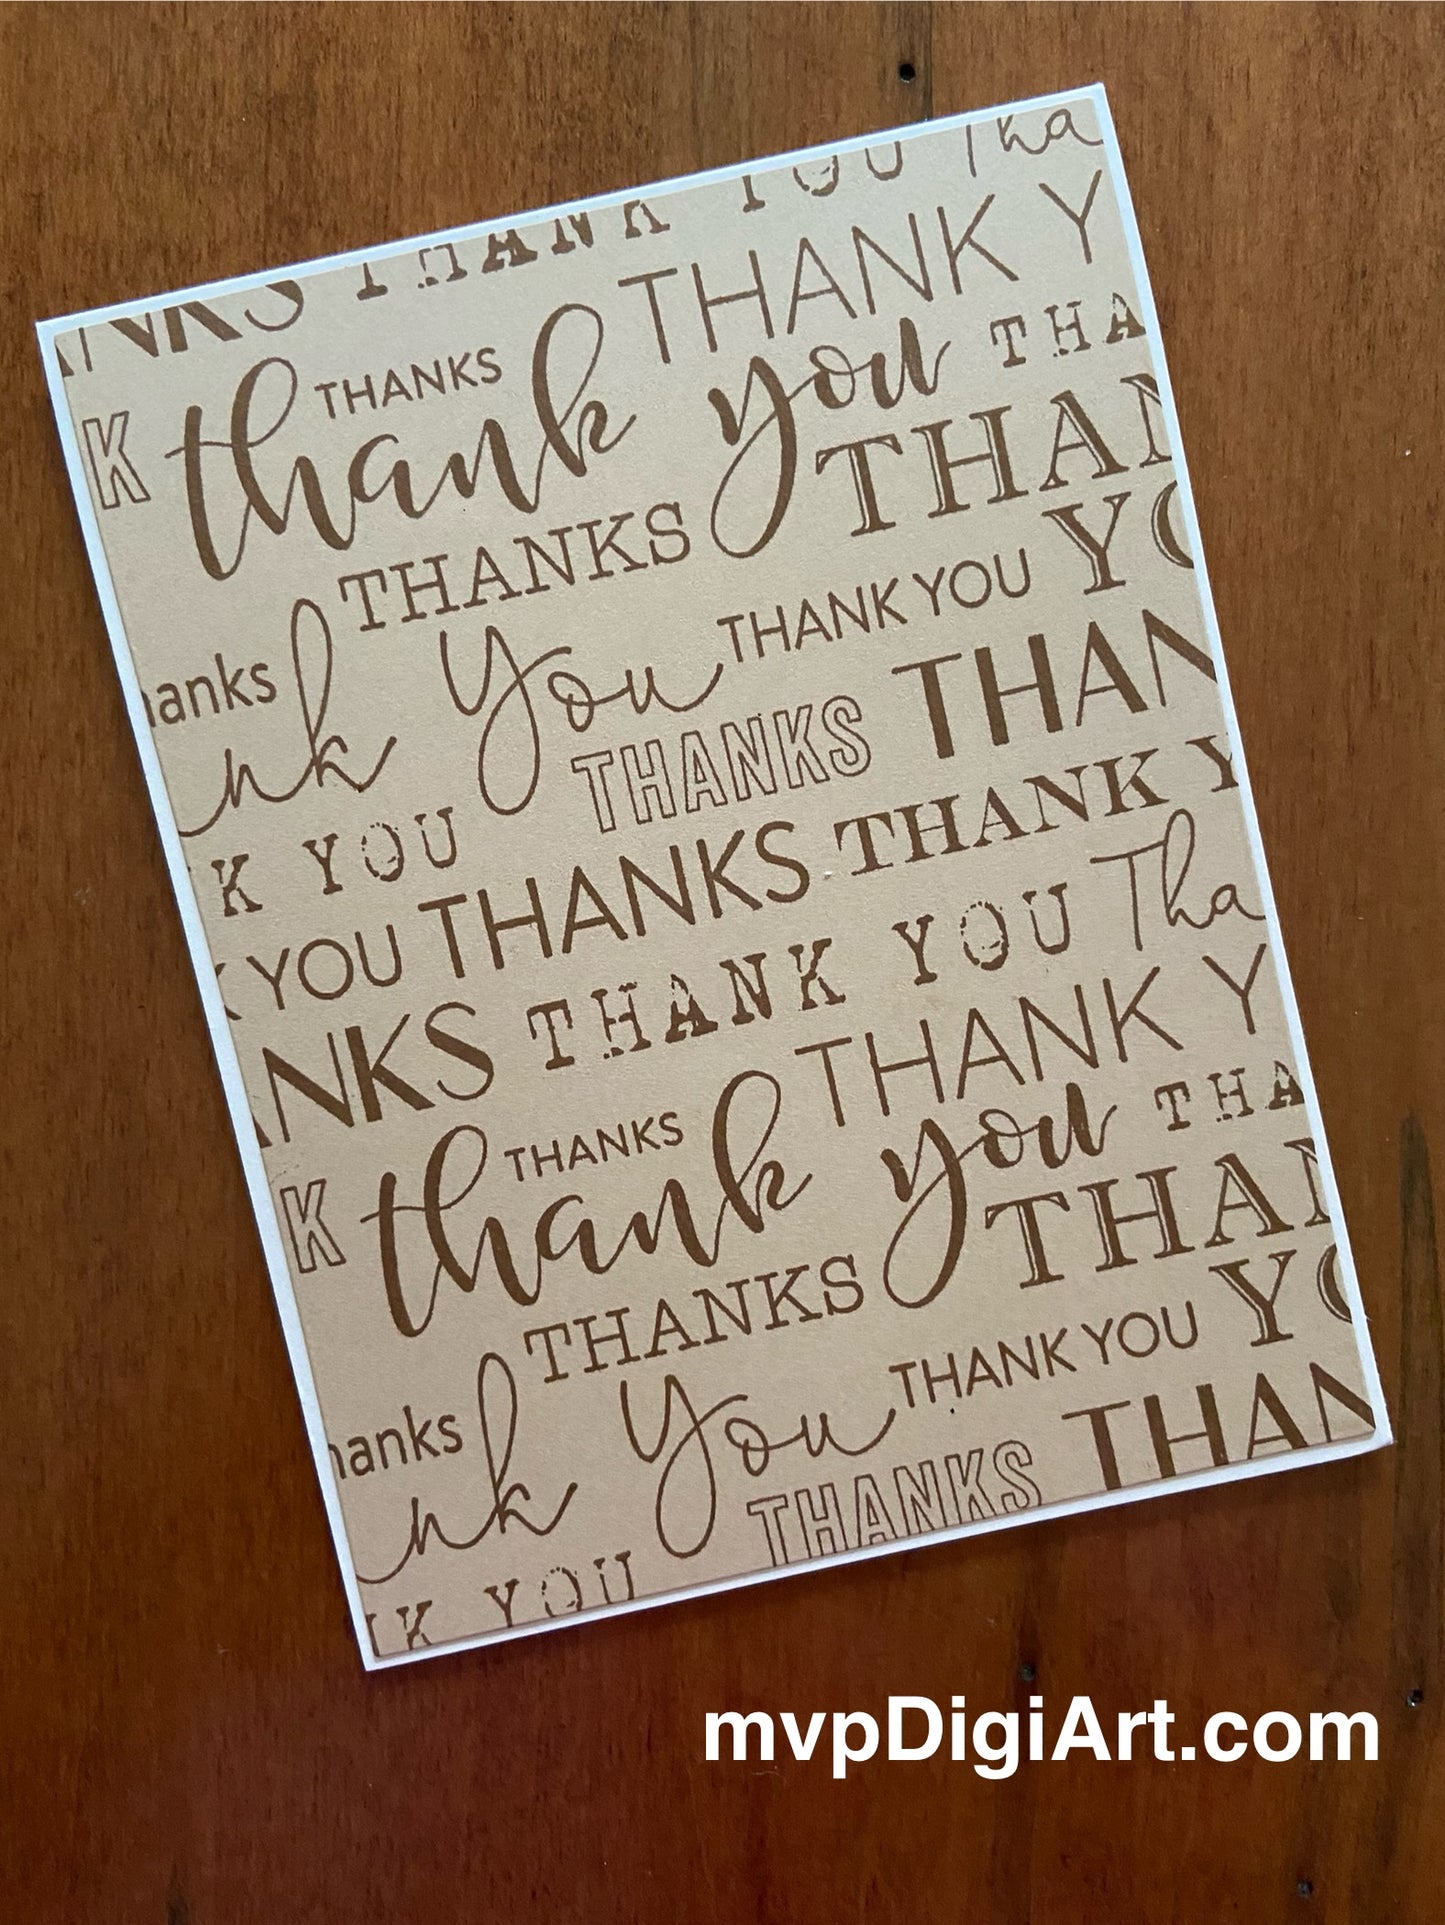 ANKS THANK YOU Tha
THANKS THANK Y
K thank you THA
THANKS THAN
hanks nk You THANK YOU YO
THANKS THAN
K YOU THANKS THANK Y
K YOU THANK YOU Tha
ANKS THANK Y
THANKS
K thank you THA
THANKS THAN
hanks nk You THANK YOU YO
THANKS THAN
NK YOU
mvpDigiArt.com